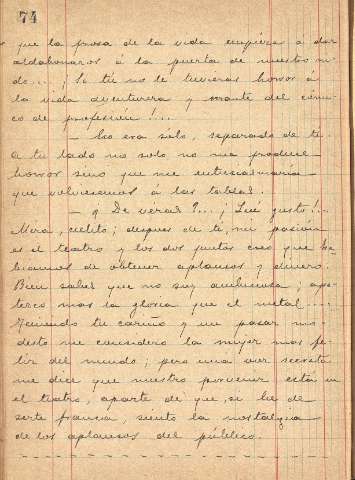 74
que la prosa de la vida empieza a dar
aldabonazos á la puerta de nuestro ni-
do... ¡Si tú no le tuvieras horror á
la vida aventurera y errante del cómi-
co de profesión!...
— Eso era solo, separado de ti.
a tu lado no solo no me produce
horror sino que me entusiasmaría
que volviésemos á las tablas.
— ¿De veras?... ¡Qué gusto!...
Mira, cielito; despues de ti, mi pasión
es el teatro y los dos juntos creo que ha-
bíamos de obtener aplausos y dinero.
Bien sabes que no soy ambiciosa; ape-
tezco mas la gloria que el metal...
Teniendo tu cariño y un pasar mo-
desto me considero la mujer mas fe-
liz del mundo; pero una voz secreta
me dice que nuestro porvenir está en
el teatro, aparte de que, si he de
serte franca, siento la nostalgia
de los aplausos del público.